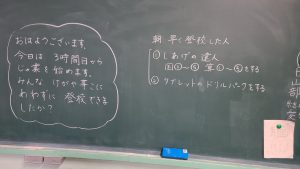 おはようございます。
今日は 3時間目から
じゅ業を 始めます。
みんな けがや事こに
あわずに 登校できま
したか？
朝 早く登校した人
① しあげの達人
国①～⑤ 算①～⑤をする
② タブレットのドリルパークをする